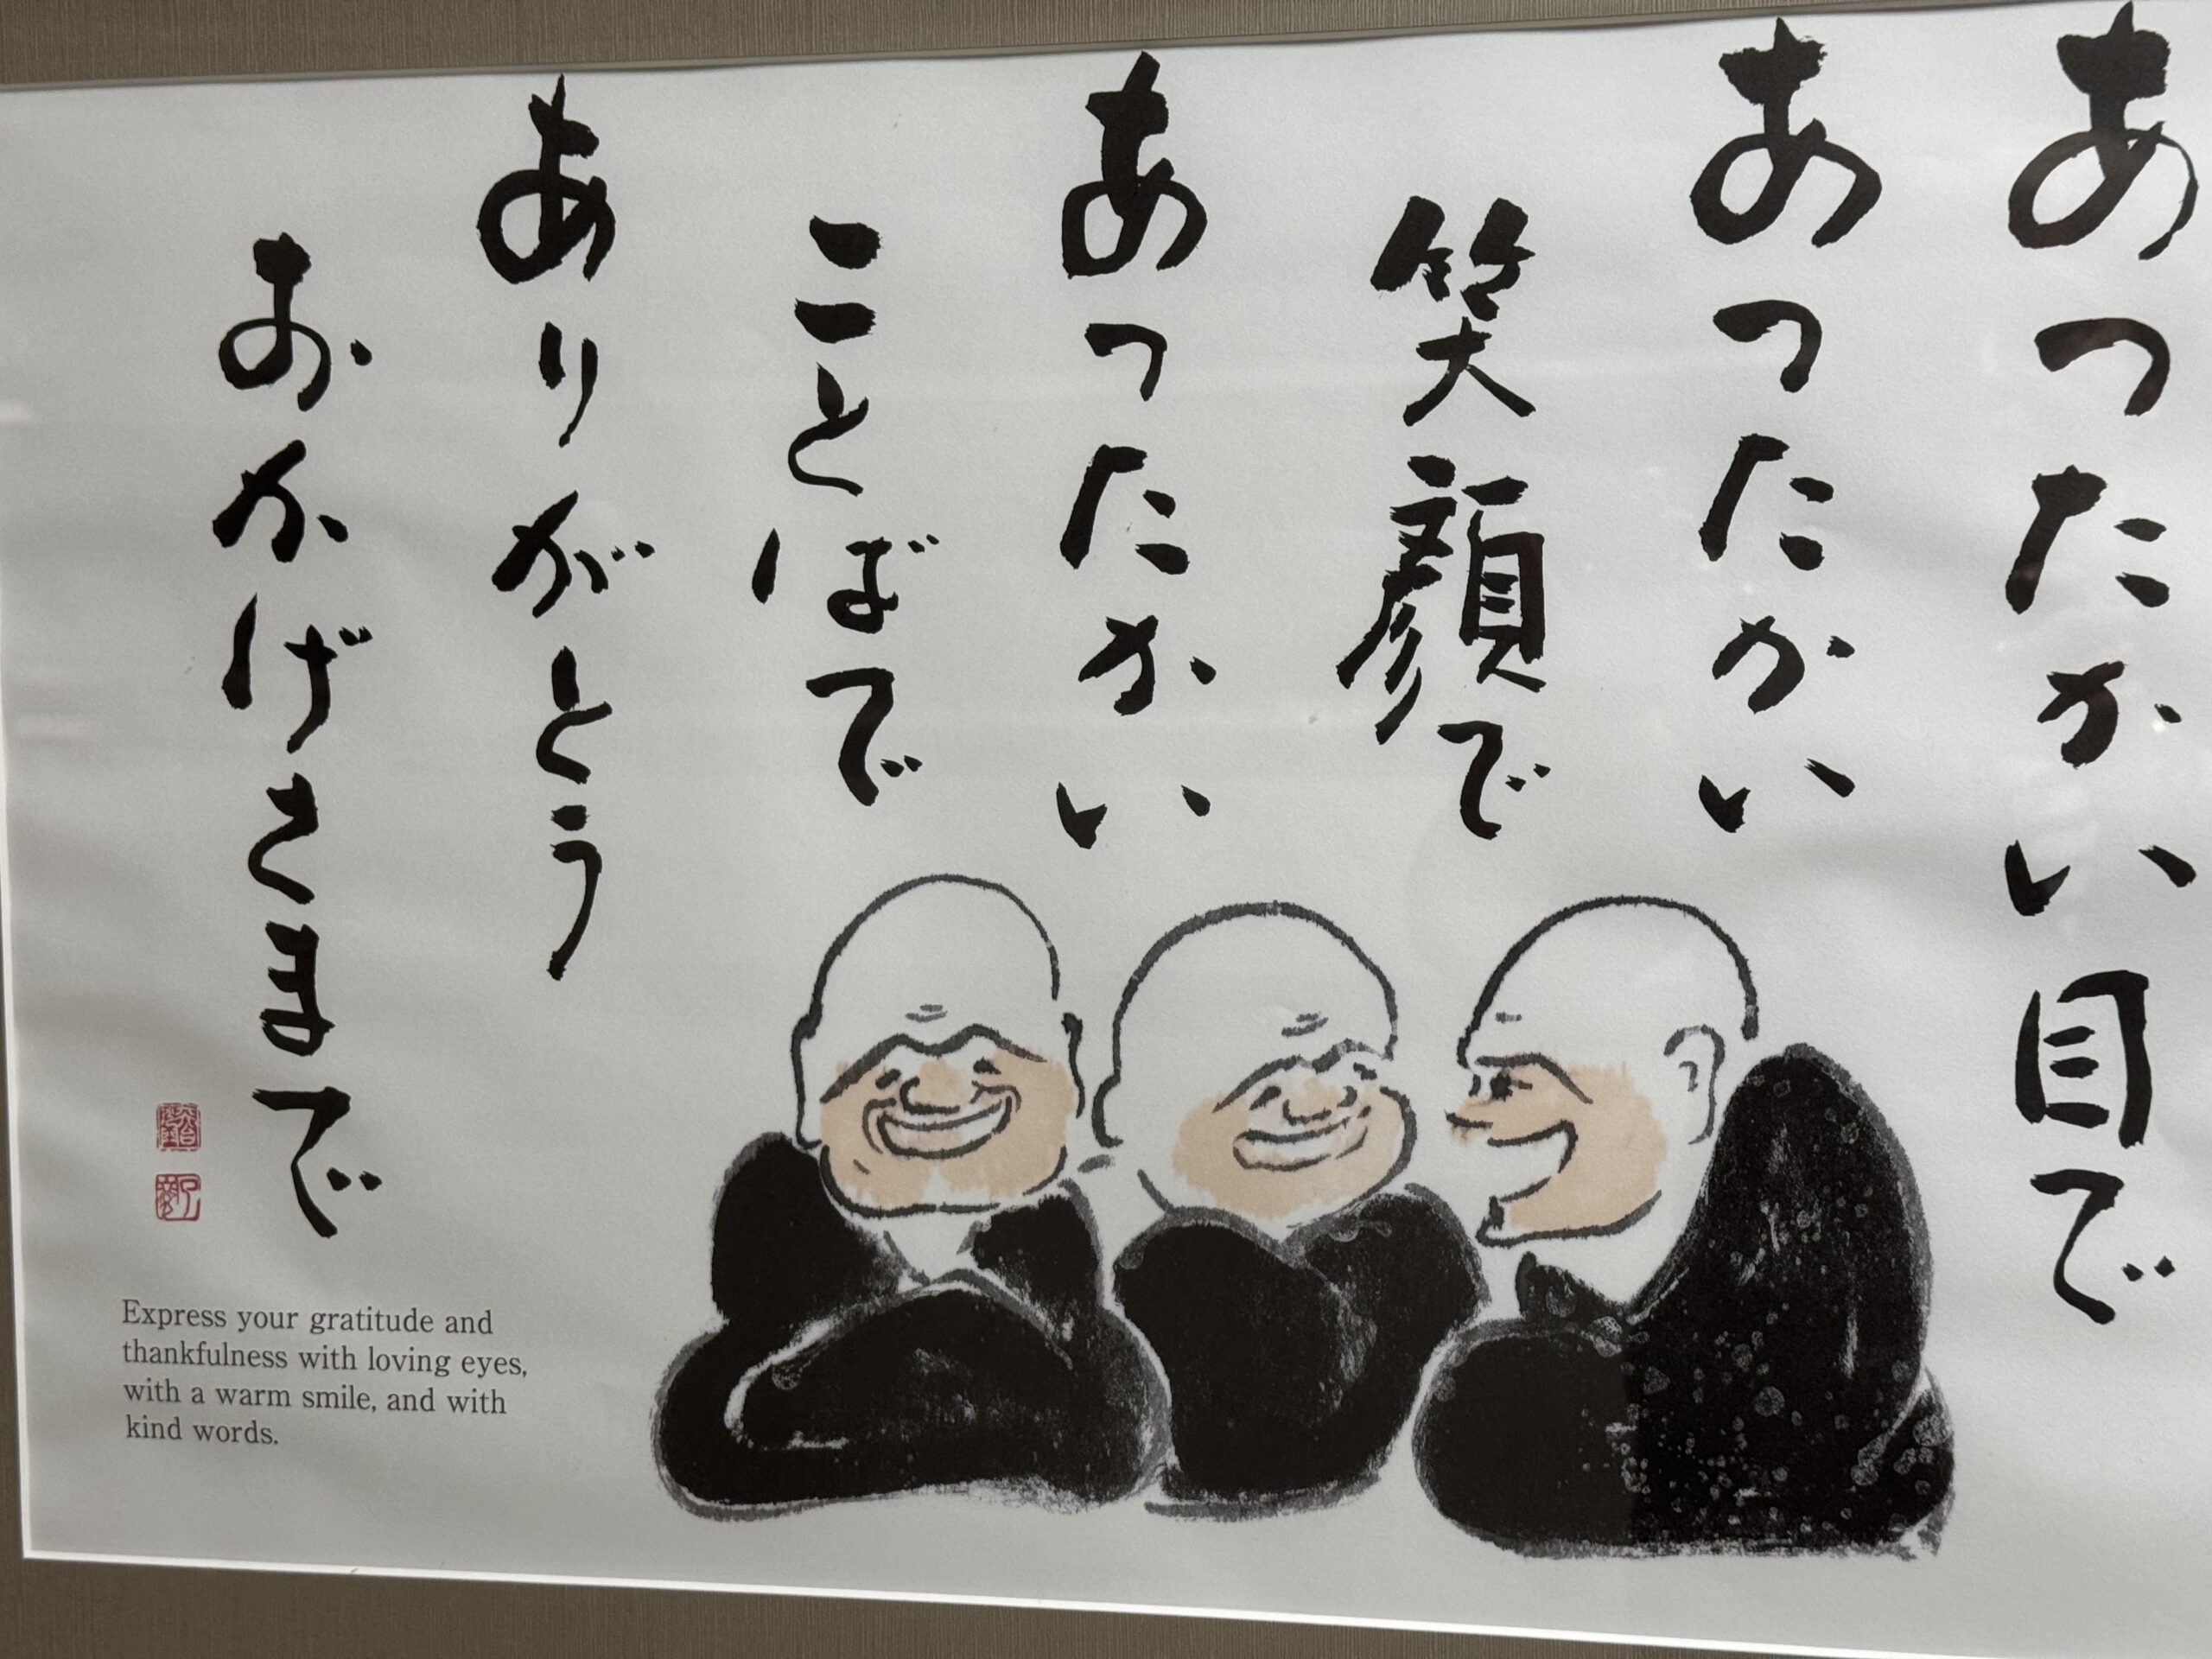 あったかい目で
あったかい
笑顔で
あったかい
ことばで
ありがとう
おかげさまで
Express your gratitude and
thankfulness with loving eyes,
with a warm smile, and with
kind words.